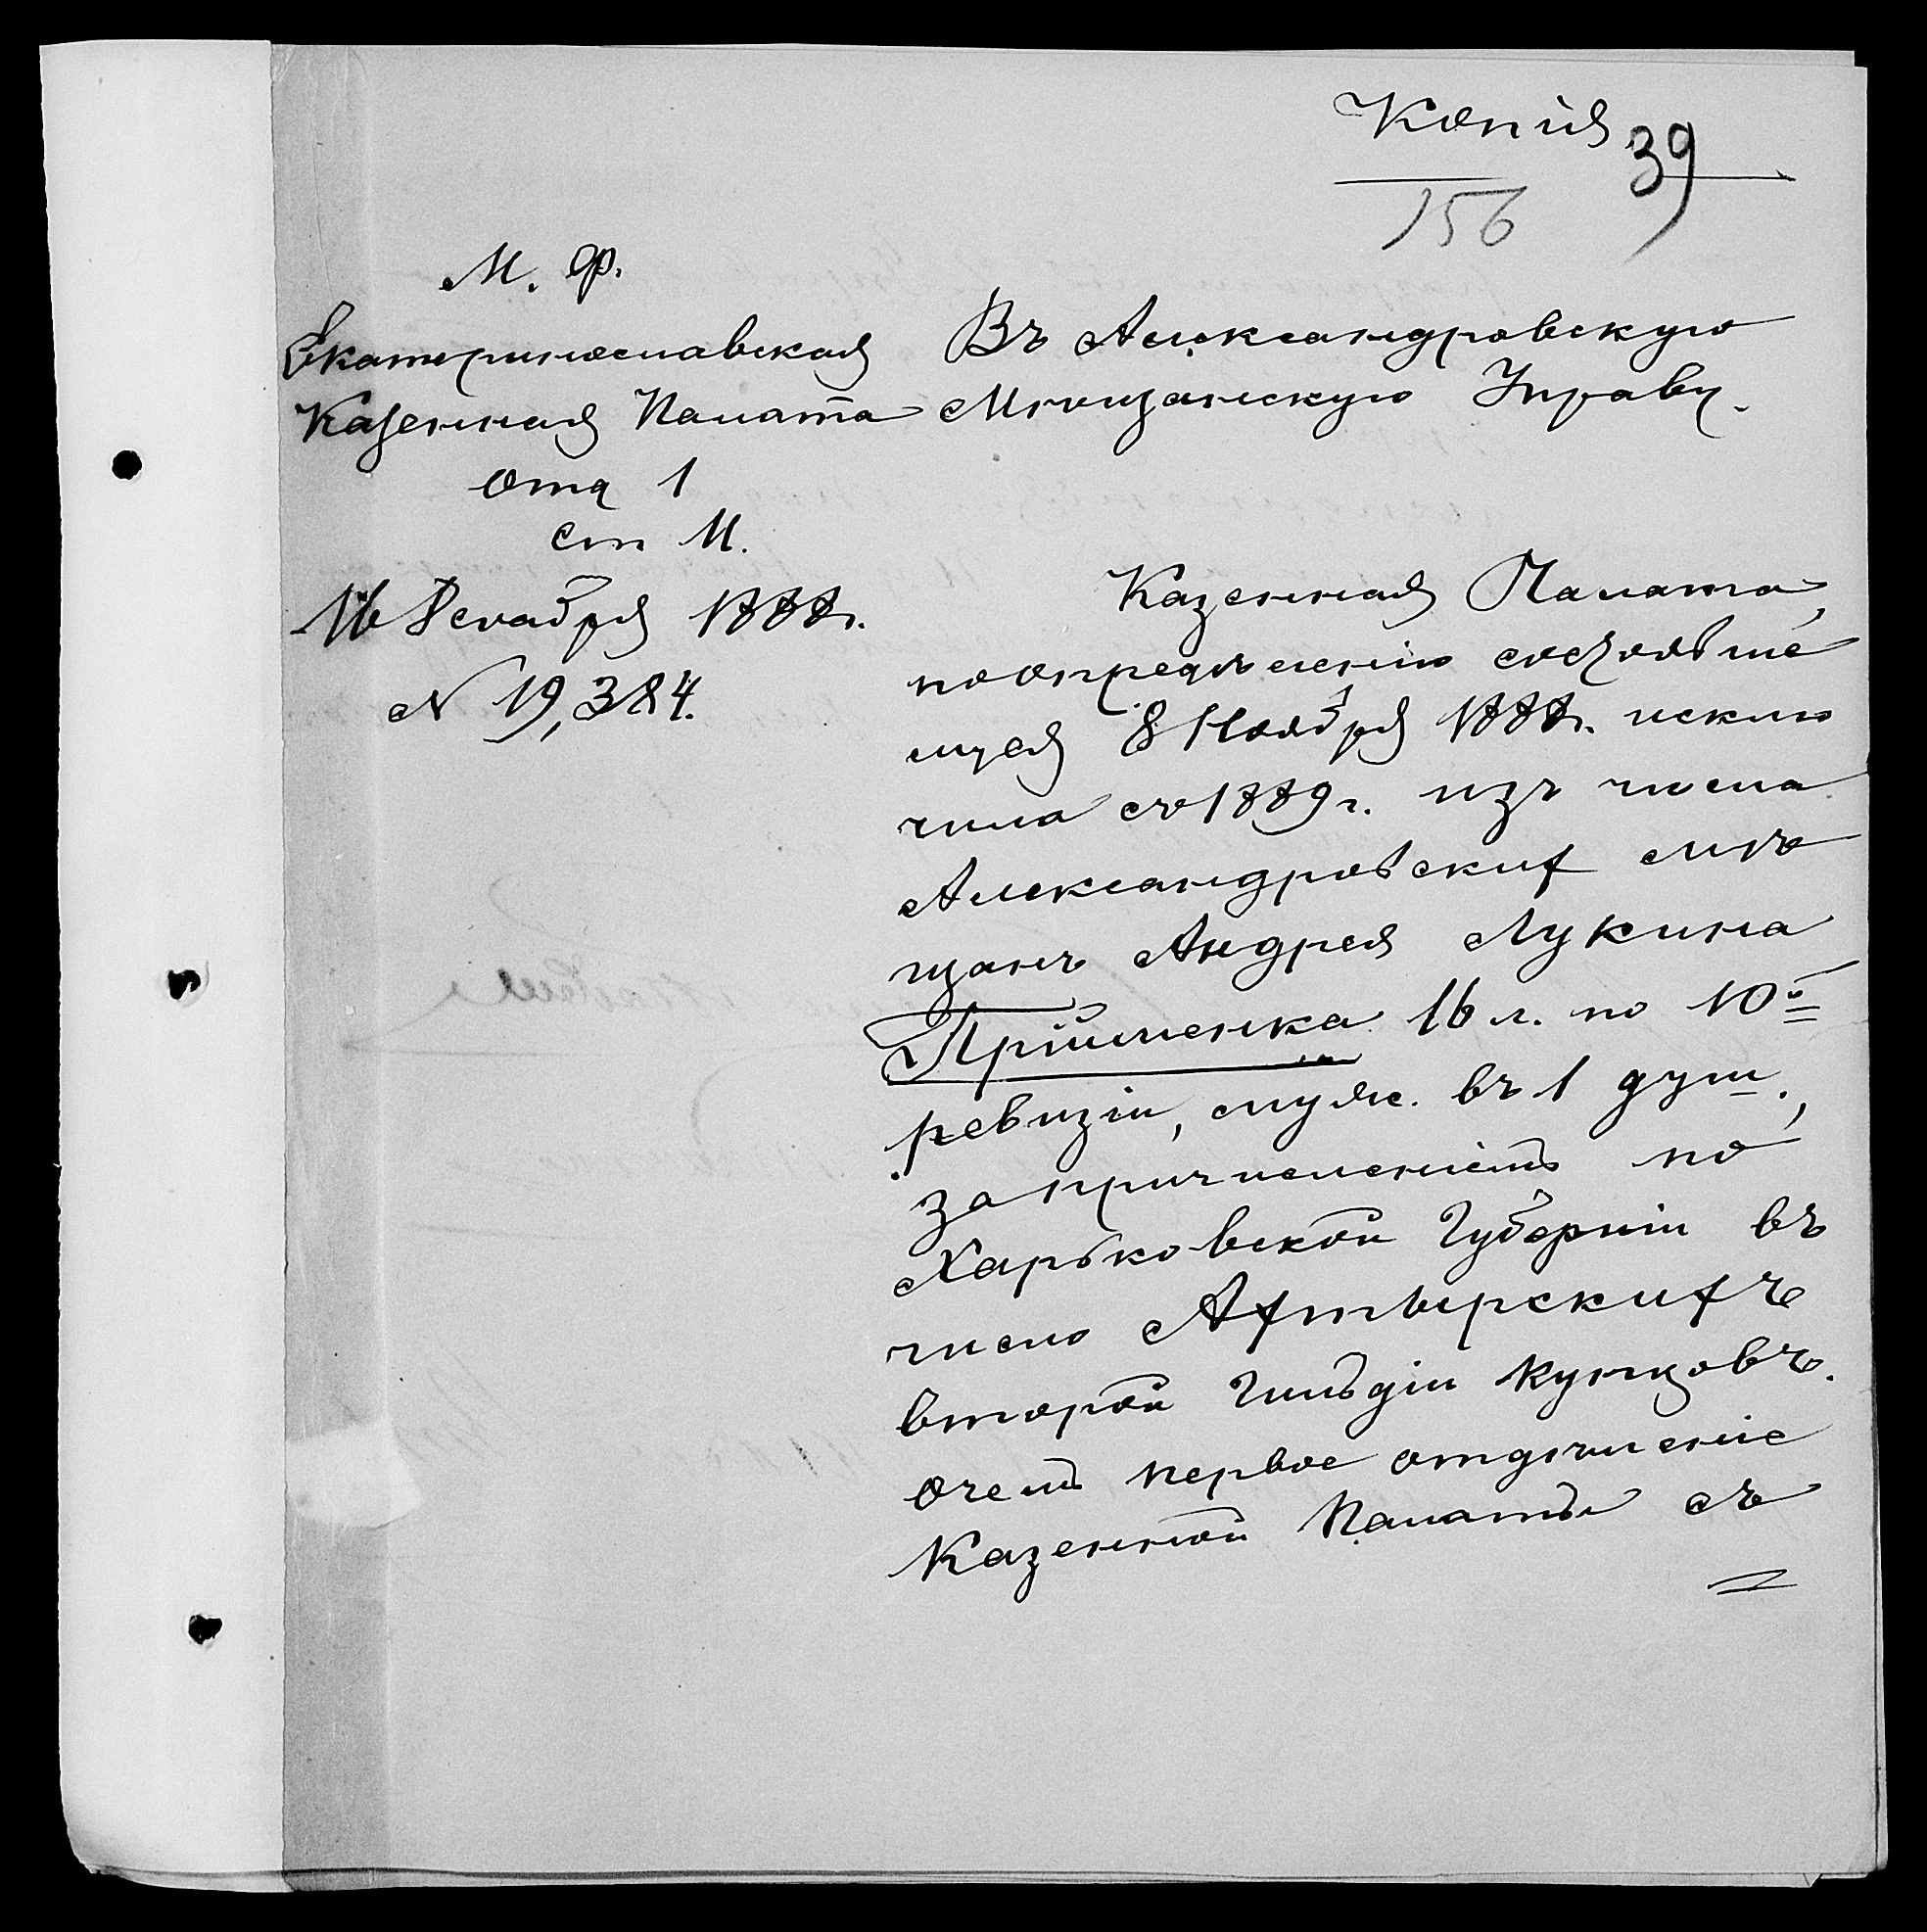 Копія
39
156
М. Ф.
Екатеринославская
Казенная Палата
отд 1
ст М.
16 Декабря 1888 г.
N 19,384.
Въ Александровскую
Мѣщанскую Управу.
Казенная Палата,
по опредѣленію состоявше
муся 8 Ноября 1888 г. исклю
чила съ 1889 г. изъ числа
Александровских мѣ
щанъ Андрея Лукина
Прийменка 16 л. по 10й
ревизіи, муж. въ 1 душ.,
за причисленіемъ по
Харьковской Губерніи въ
число Ахтырскихъ
второй Гильдіи купцовъ.
О чемъ первое отдѣленіе
Казенной Палаты съ